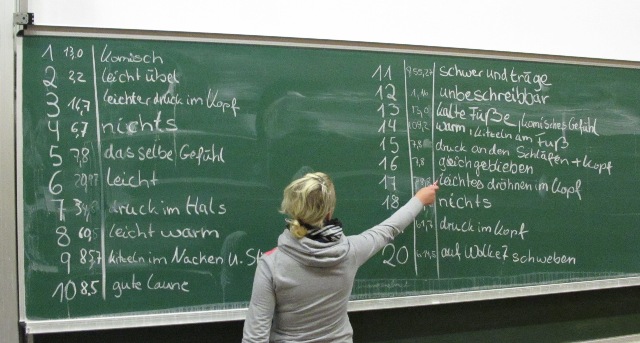 1 13,0 komisch
2 2,2 leicht übel
3 14,7 leichter druck im Kopf
4 6,7 nichts
5 7,8 dasselbe Gefühl
6 leicht
7 druck im Hals
8 leicht warm
9 85,7 kitzeln im Nacken u.
10 8,5 gute Laune
11 schwer und träge
12 unbeschreibbar
13 kalte Füße, komisches Gefühl
14 109,2 warm, kitzeln am Fuß
15 7,8 druck an den Schläfen + Kopf
16 7,8 gleichgeblieben
17 leichtes dröhnen im Kopf
18 nichts
druck im Kopf
20 auf Wolke 7 schweben